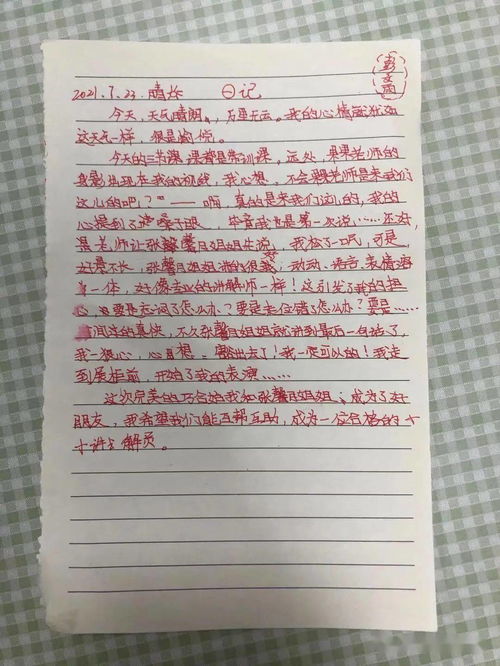 2021.7.23. 晴 日记
今天，天气晴朗，万里无云。我的心情就犹如
这天气一样，很是愉悦。
今天的三节课，课都是常训课，远处，果果老师的
身影出现在我的视线，我心想，不会果果老师是来我们
这儿的吧！？ —— 啊，真的是来我们这儿的，我的
心提到了嗓子眼，毕竟我也是第一次说……还好，
是老师让张馨月姐姐先说，我松了一口气，可是，
好景不长，张馨月姐姐讲的很好，动动、语言、表情溶
为一体，好像专业的讲解师一样！这引发了我的担
心，要是忘词了怎么办？要是走位错怎么办？要是……
时间过的真快，不久张馨月姐姐就讲到最后一句话了，
我一狠心，心里想，豁出去了！我一定可以的！我走
到展柜前，开始了我的表演……
这次完美的巧合给我和张馨月姐姐，成为了好
朋友，我希望我们能互帮互助，成为一位合格的十
十讲解员。